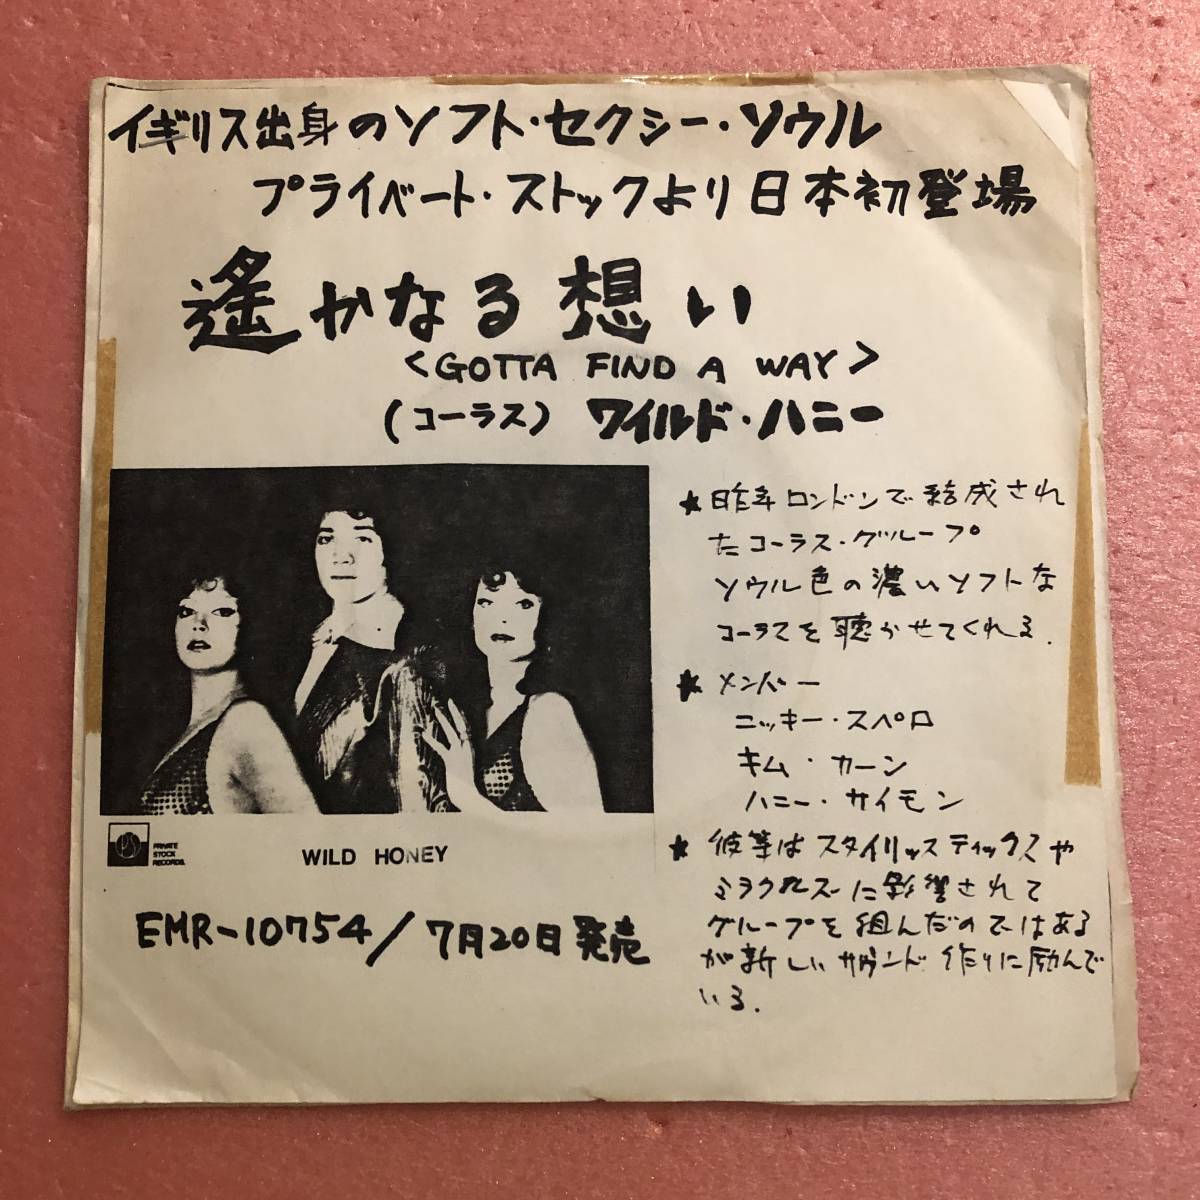 イギリス出身のソフト・セクシー・ソウル
プライベート・ストックより日本初登場
遙かなる想い
<GOTTA FIND A WAY>
(コーラス) ワイルド・ハニー
★昨年ロンドンで結成され
たコーラス・グループ
ソウル色の濃いソフトな
コーラスを聴かせてくれる.
★メンバー
ニッキー・スペロ
キム・カーン
ハニー・サイモン
★彼等はスタイリッスティックスや
ミラクルズに影響されて
グループを組んだのではある
が新しいサウンド作りに励んで
いる.
PS
PRIVATE
STOCK
RECORDS.
WILD HONEY
EMR-10754/7月20日発売